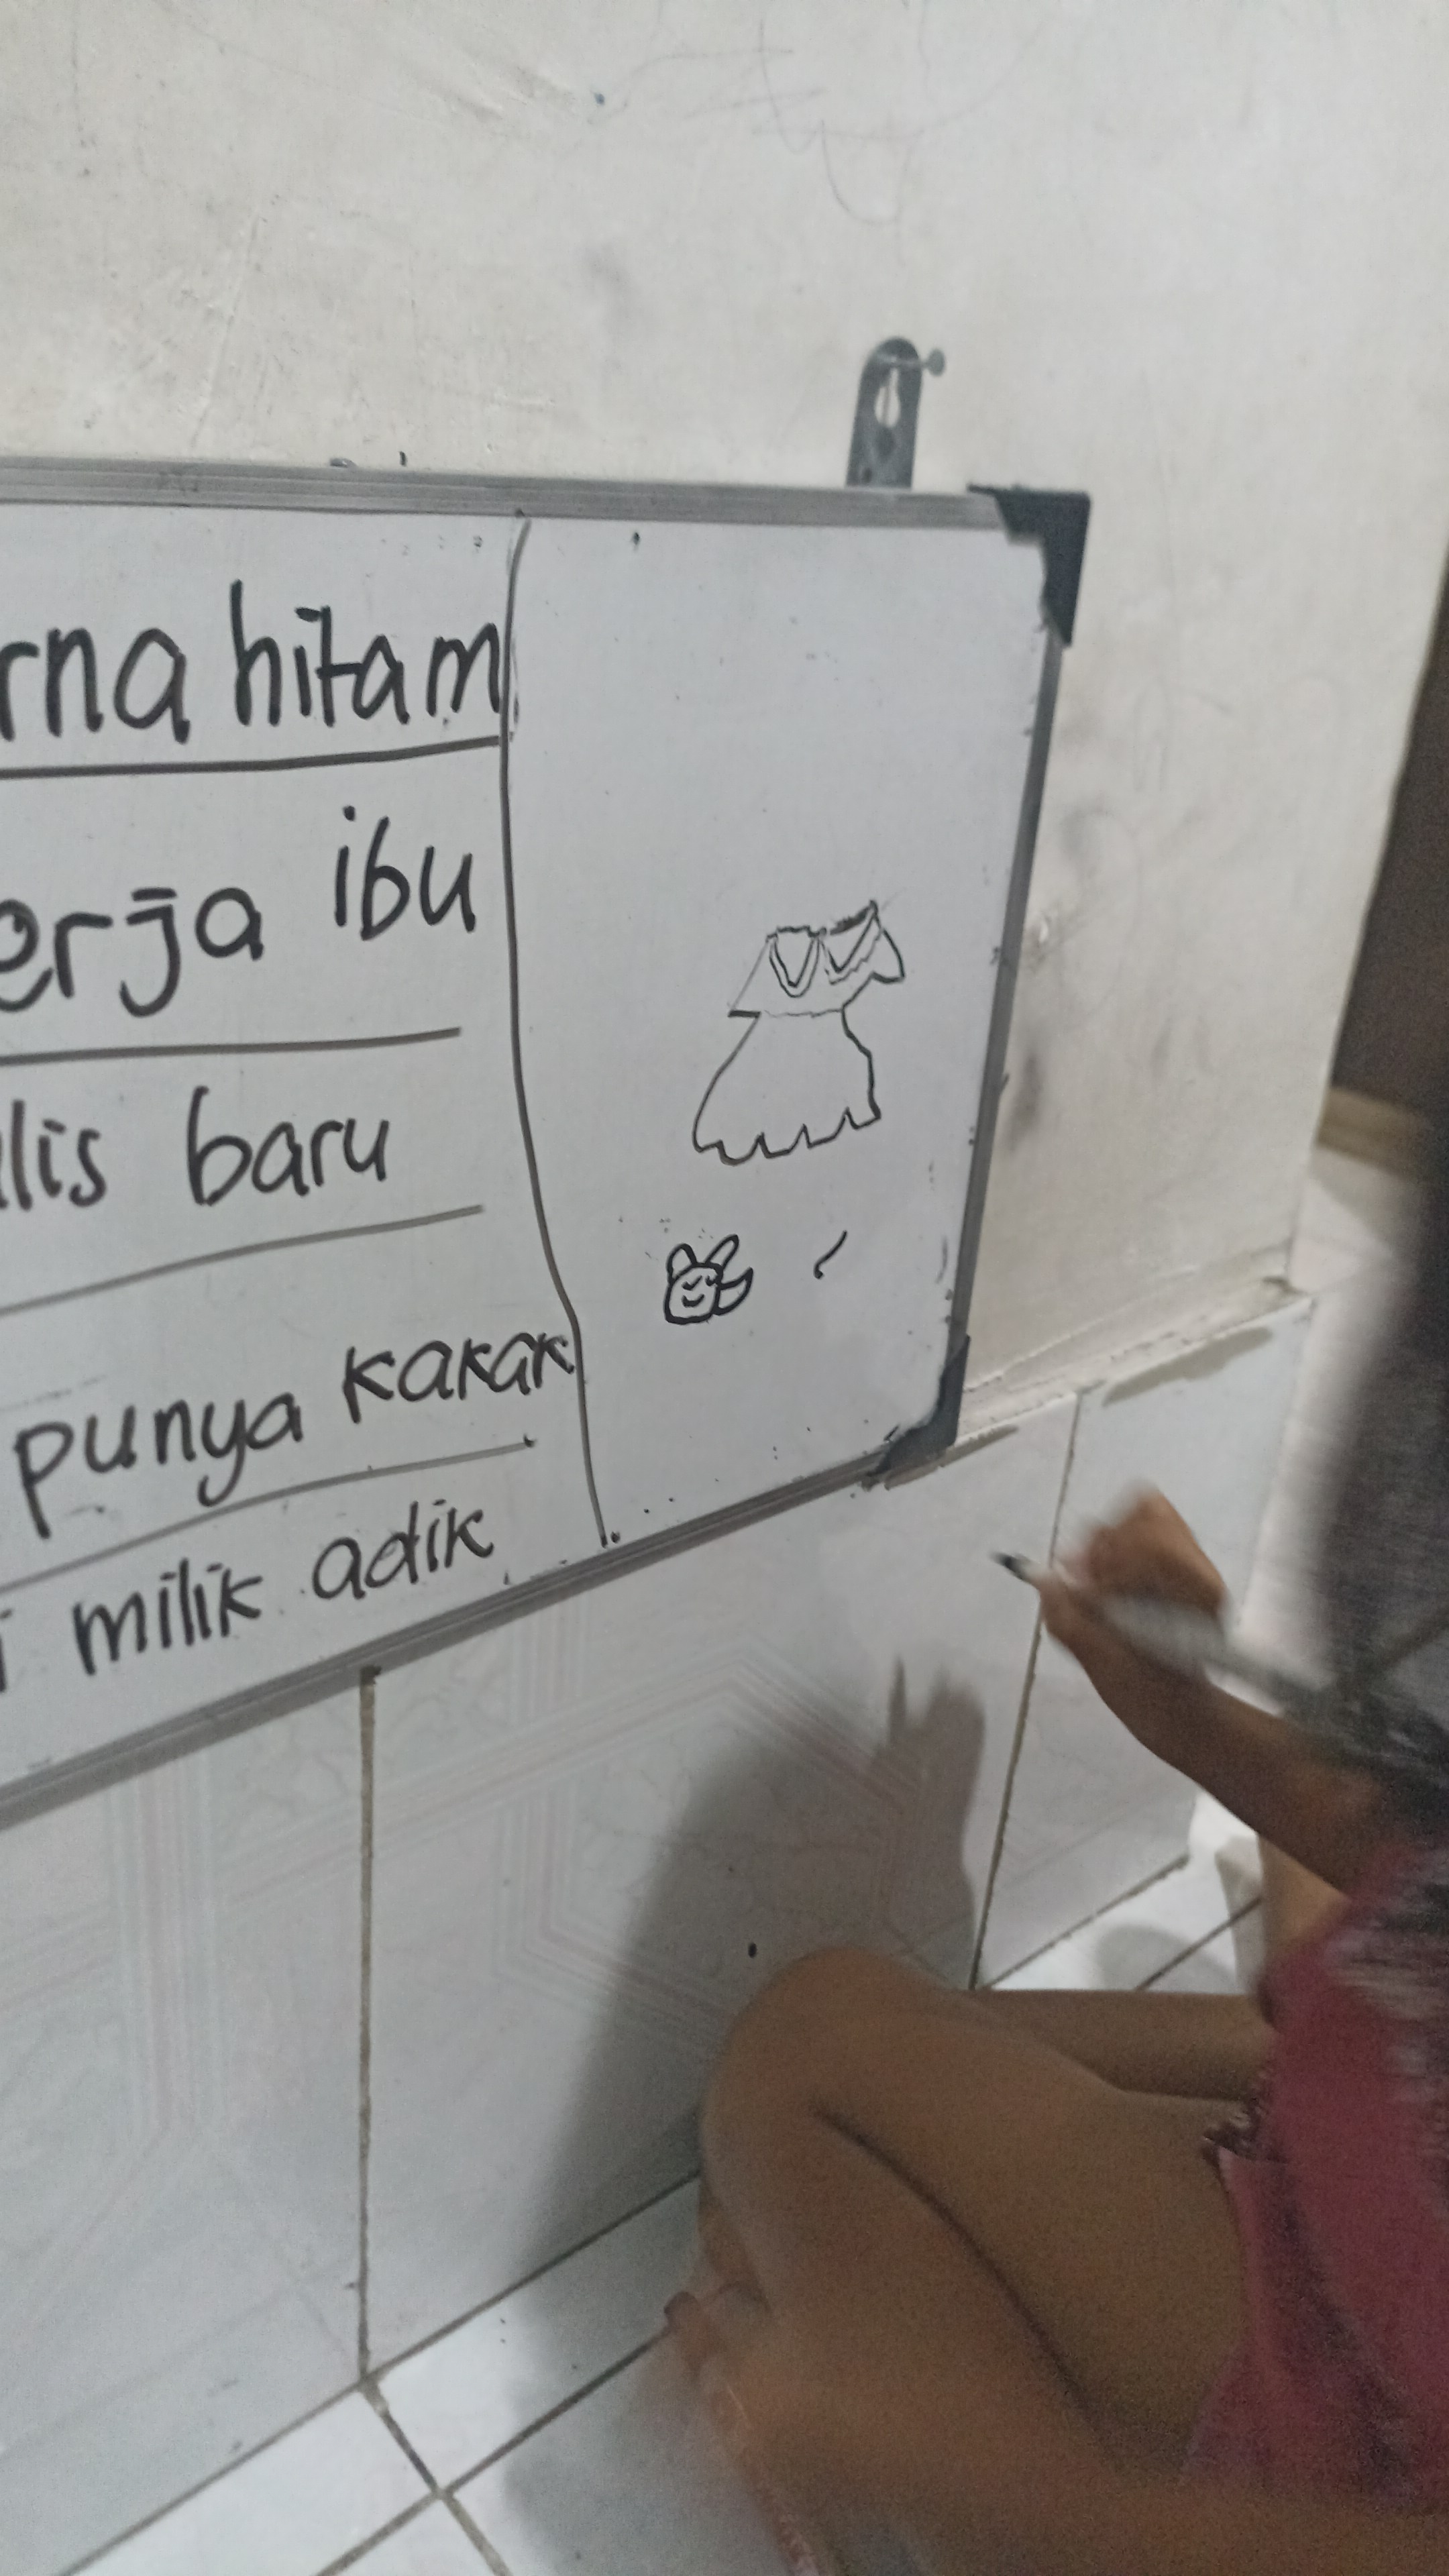 rna hitam
erja ibu
lis baru
punya kakak
milik adik